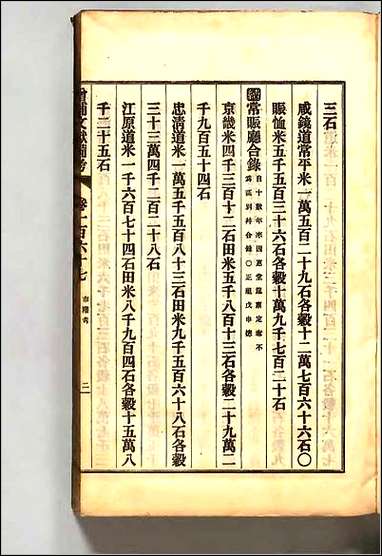 三石
咸鏡道常平米一萬五百二十九石各穀十二萬七百六十六石〇
賑恤米五千五百三十六石各穀十萬九千七百二十石
常賑廳合錄
京畿米四千三百十二石田米五千八百十三石各穀二十九萬二
千九百五十四石
忠淸道米一萬五千五百八十三石田米九千五百六十八石各穀
三十三萬四千二百二十八石
江原道米一千六百七十四石田米八千九百四石各穀十五萬八
千二十五石
增補文獻備考
卷一百六十七
市糴考
二